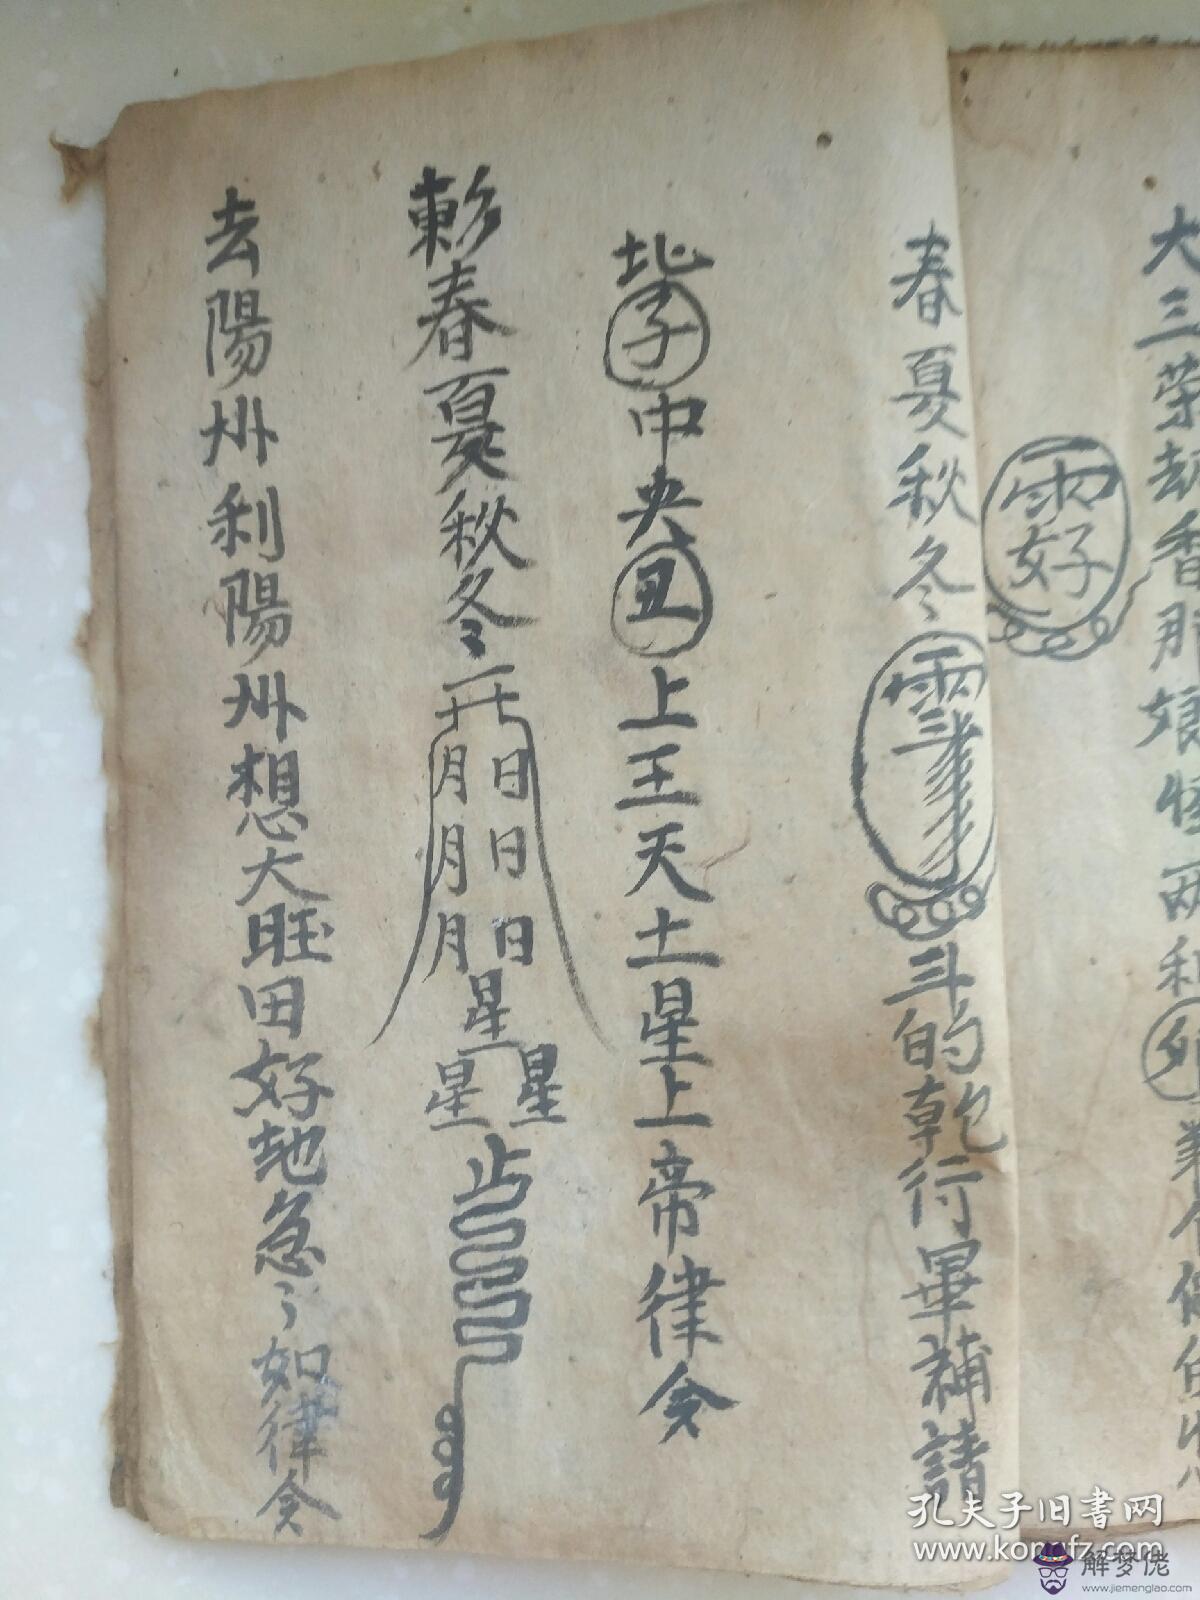 大三荣劫香那娘怪两利卯
雨好
春夏秋冬雨斗的乾行畢補請
北子中央丑上王天土星上帝律令
勅春夏秋冬二十七月日月日月日星星星
去陽州利陽州想大旺田好地急〻如律令
孔夫子旧书网
www.kongfz.com
解梦佬
www.jiemenglao.com